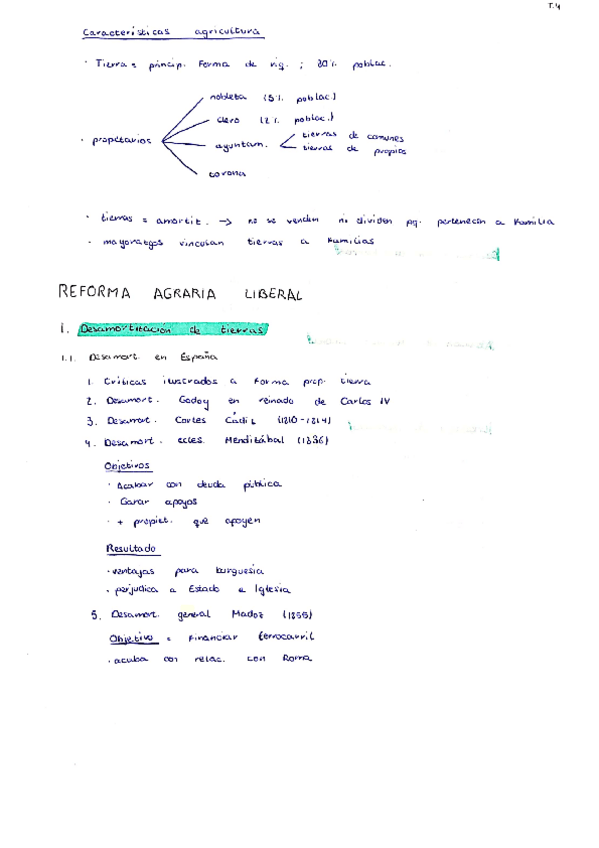 T.4
Características agricultura
· Tierra = princip. forma de riq. ; 80% poblac.
nobleza (5% poblac.)
clero (2% poblac.)
· propietarios
ayuntam.
tierras de comunes
tierras de propios
corona
· tierras = amortiz. → no se venden ni dividen pq. pertenecen a familia
· mayorazgos vinculan tierras a familias
REFORMA AGRARIA LIBERAL
1. Desamortización de tierras
1.1. Desamort. en España
1. Críticas ilustrados a forma prop. tierra
2. Desamort. Godoy en reinado de Carlos IV
3. Desamort. Cortes Cádiz (1810-1814)
4. Desamort. ecles. Mendizábal (1836)
Objetivos
· Acabar con deuda pública
· Ganar apoyos
· + propiet. que apoyen
Resultado
· ventajas para burguesía
· perjudica a Estado e Iglesia
5. Desamort. general Madoz (1855)
Objetivo = financiar ferrocarril
· acaba con relac. con Roma